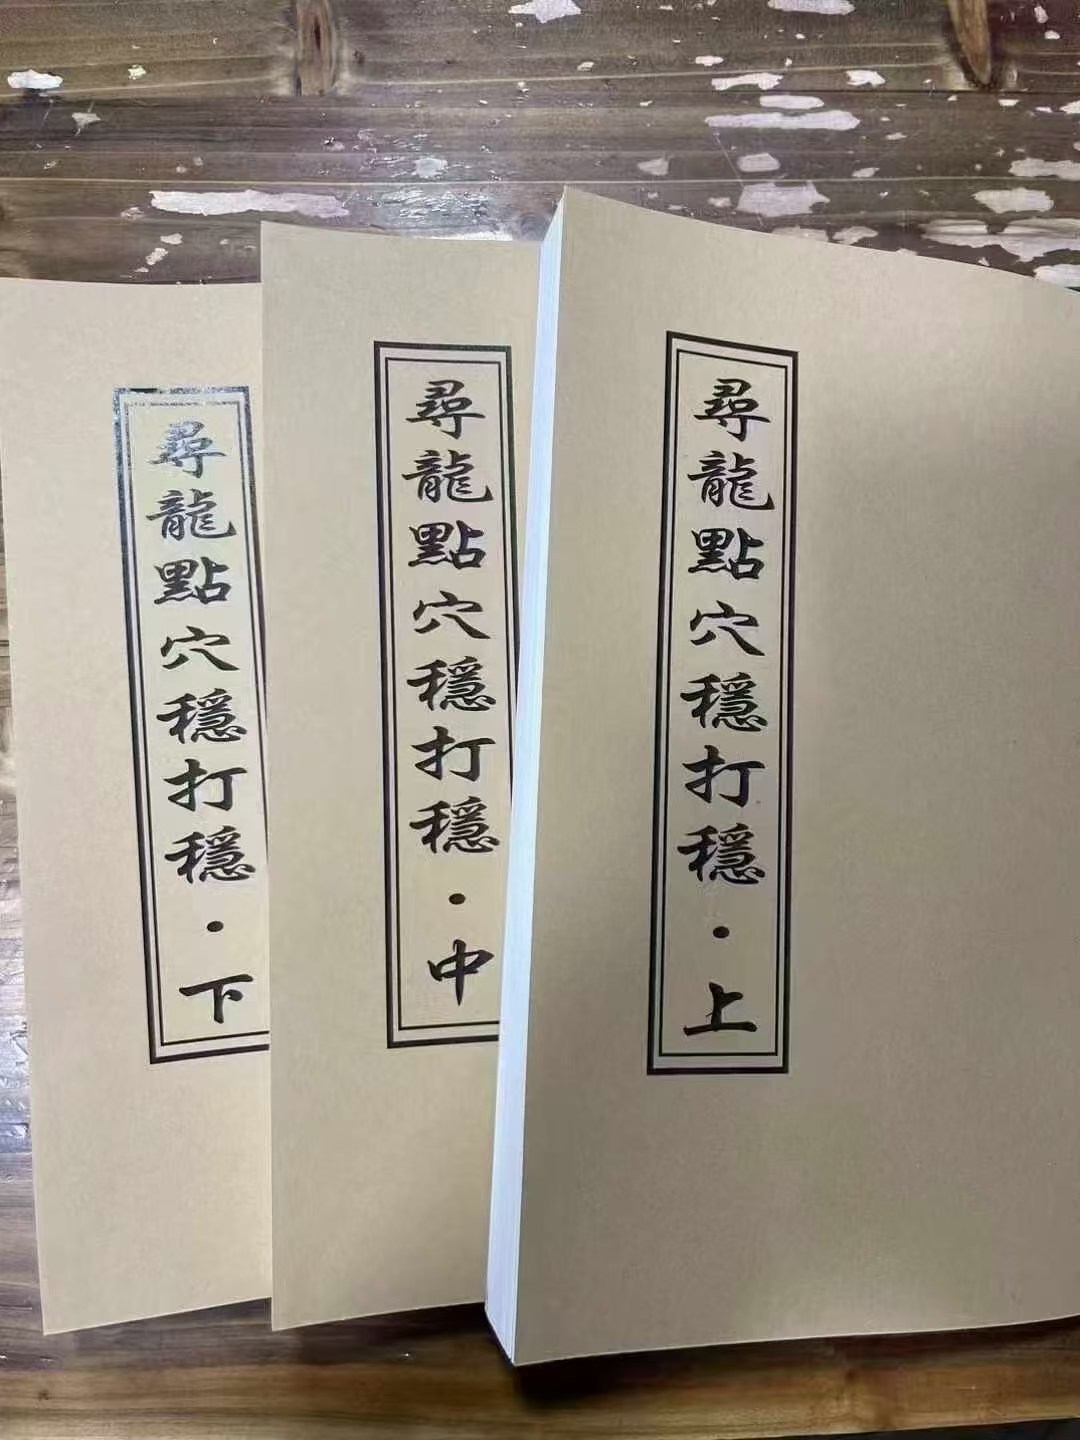 尋龍點穴穩打穩·上
尋龍點穴穩打穩·中
尋龍點穴穩打穩·下